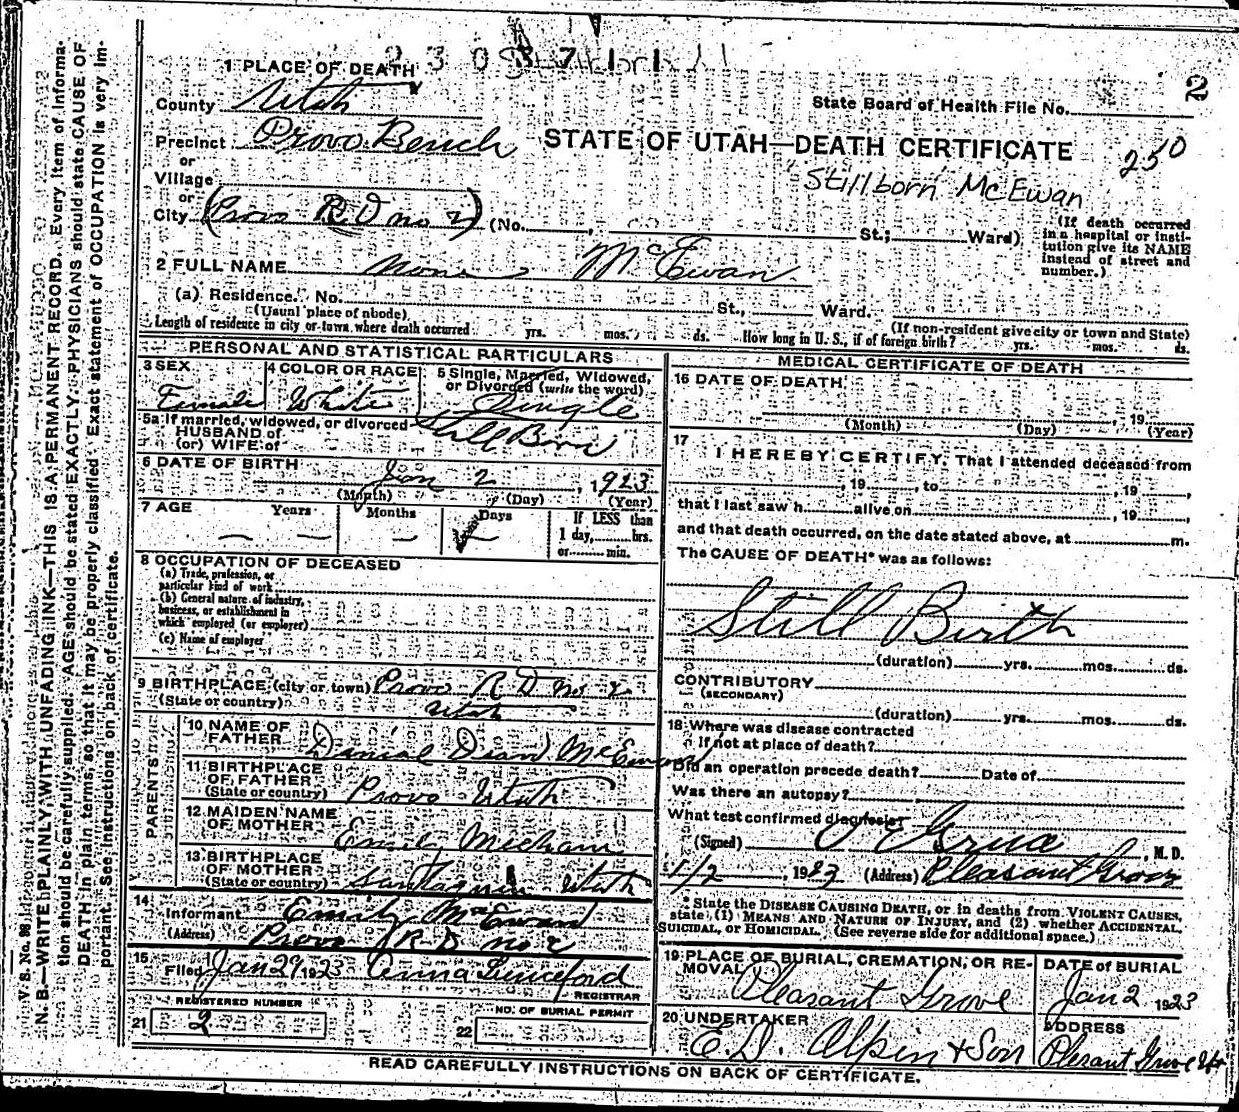 2 3 0 3 7 1 1
Stillborn
2
1 PLACE OF DEATH
County Utah
State Board of Health File No.
Precinct Provo Bench
STATE OF UTAH—DEATH CERTIFICATE
250
or
Village
Stillborn McEwan
or
City (Provo R D no 2) (No. , St.; Ward)
(If death occurred in a hospital or insti-
tution give its NAME instead of street and number.)
2 FULL NAME none McEwan
(a) Residence. No. St., Ward.
(Usual place of abode)
(If non-resident give city or town and State)
Length of residence in city or town where death occurred yrs. mos. ds. How long in U. S., if of foreign birth? yrs. mos. ds.
PERSONAL AND STATISTICAL PARTICULARS
3 SEX
Female
4 COLOR OR RACE
White
5 Single, Married, Widowed,
or Divorced (write the word)
Single
5a If married, widowed, or divorced
HUSBAND of
(or) WIFE of
Still Born
6 DATE OF BIRTH
Jan 2, 1923
(Month) (Day) (Year)
7 AGE Years Months Days If LESS than
— — — — 1 day, hrs.
or min.
8 OCCUPATION OF DECEASED
(a) Trade, profession, or
particular kind of work
(b) General nature of industry,
business, or establishment in
which employed (or employer)
(c) Name of employer
9 BIRTHPLACE (city or town) Provo R D no 2
(State or country) Utah
PARENTS
10 NAME OF
FATHER Danial Dean McEwan
11 BIRTHPLACE
OF FATHER
(State or country) Provo Utah
12 MAIDEN NAME
OF MOTHER Emily Mecham
13 BIRTHPLACE
OF MOTHER
(State or country) Santaquin Utah
14
Informant Emily McEwan
(Address) Provo R D no 2
15
Filed Jan 29, 1923 Anna Lunceford
REGISTRAR
REGISTERED NUMBER
21 2
NO. OF BURIAL PERMIT
22
MEDICAL CERTIFICATE OF DEATH
16 DATE OF DEATH
, 19
(Month) (Day) (Year)
17
I HEREBY CERTIFY, That I attended deceased from
, 19 , to , 19 ,
that I last saw h alive on , 19 ,
and that death occurred, on the date stated above, at m.
The CAUSE OF DEATH* was as follows:
Still Birth
(duration) yrs. mos. ds.
CONTRIBUTORY
(SECONDARY)
(duration) yrs. mos. ds.
18 Where was disease contracted
if not at place of death?
Did an operation precede death? Date of
Was there an autopsy?
What test confirmed diagnosis?
(Signed) O E Grua, M. D.
1/2, 1923 (Address) Pleasant Grove
* State the DISEASE CAUSING DEATH, or in deaths from VIOLENT CAUSES,
state (1) MEANS AND NATURE OF INJURY, and (2) whether ACCIDENTAL,
SUICIDAL, OR HOMICIDAL. (See reverse side for additional space.)
19 PLACE OF BURIAL, CREMATION, OR RE-
MOVAL Pleasant Grove
DATE of BURIAL
Jan 2 1923
20 UNDERTAKER
E. D. Olpin & Son
ADDRESS
Plesant Grove Ut
READ CAREFULLY INSTRUCTIONS ON BACK OF CERTIFICATE.
V. S. No. 
N. B.—WRITE PLAINLY WITH UNFADING INK—THIS IS A PERMANENT RECORD. Every item of informa-
tion should be carefully supplied. AGE should be stated EXACTLY. PHYSICIANS should state CAUSE OF
DEATH in plain terms, so that it may be properly classified. Exact statement of OCCUPATION is very im-
portant. See instructions on back of certificate.